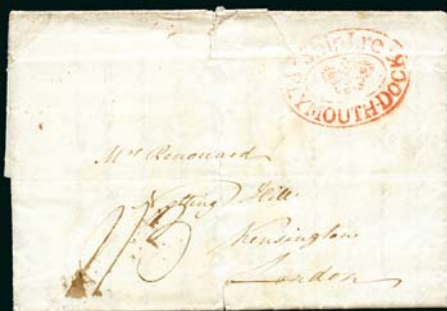 Ship Lre
PLYMOUTH·DOCK
Mrs Renouard
Notting Hill
Kensington
London
1/3